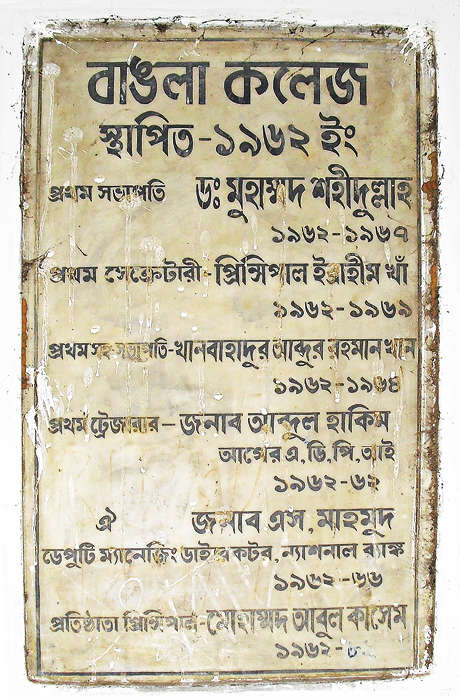 বাঙলা কলেজ
স্থাপিত-১৯৬২ ইং
প্রথম সভাপতি ডঃ মুহাম্মদ শহীদুল্লাহ
১৯৬২-১৯৬৭
প্রথম সেক্রেটারী-প্রিন্সিপাল ইব্রাহীম খাঁ
১৯৬২-১৯৬৯
প্রথম সহ-সভাপতি-খানবাহাদুর আব্দুর রহমান খান
১৯৬২-১৯৬৪
প্রথম ট্রেজারার- জনাব আব্দুল হাকিম
আগের এ,ডি,পি,আই
১৯৬২-৬২
ঐ জনাব এস, মাহমুদ
ডেপুটি ম্যানেজিং ডাইরেকটর, ন্যাশনাল ব্যাঙ্ক
১৯৬২-৬৬
প্রতিষ্ঠাতা প্রিন্সিপাল-মোহাম্মদ আবুল কাসেম